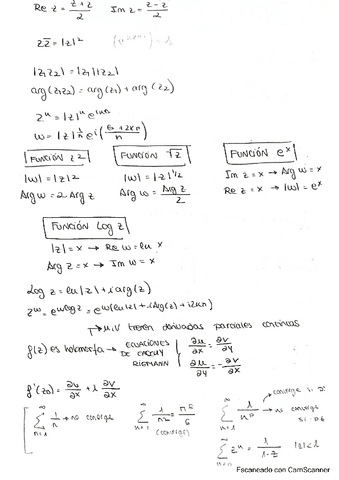 Re z = z + z̄ / 2    Im z = z - z̄ / 2
z z̄ = |z|²
|z₁z₂| = |z₁||z₂|
arg(z₁z₂) = arg(z₁) + arg(z₂)
zⁿ = |z|ⁿ e^(iαn)
w = |z|^(1/n) e^i(θ+2kπ/n)
FUNCIÓN z²    FUNCIÓN √z    FUNCIÓN e^x
|w| = |z|²    |w| = |z|^1/2    Im z = x → Arg w = x
Arg w = 2 Arg z    Arg w = Arg z / 2    Re z = x → |w| = e^x
FUNCIÓN log z
|z| = x → Re w = ln x
Arg z = x → Im w = x
Log z = ln|z| + i arg(z)
z^w = e^(w log z) = e^w(ln|z| + i Arg(z) + i2πn)
→ u,v tienen derivadas parciales continuas
f(z) es holomorfa → ECUACIONES DE CAUCHY RIEMANN { ∂u/∂x = ∂v/∂y
∂u/∂y = -∂v/∂x
f'(z₀) = ∂u/∂x + i ∂v/∂x
∑ n=1 ∞ 1/n → no converge    ∑ n=1 ∞ 1/n² = π²/6 (converge)    ∑ n=1 ∞ 1/n^p → converge si
→ no converge si
∑ zⁿ = 1/1-z    |z|<1
Escaneado con CamScanner